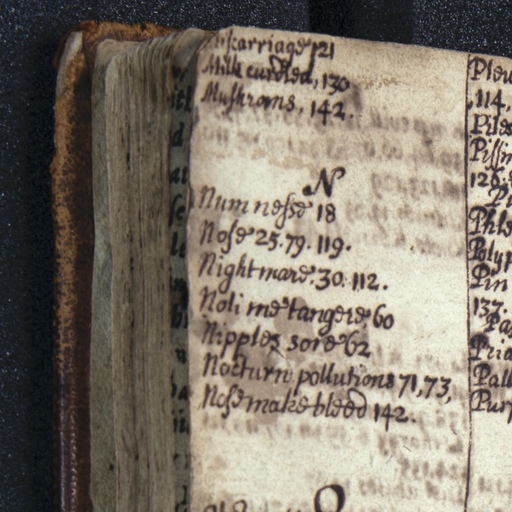 Miscarriage 121
Milk curdled, 130
Mushroms, 142.
N
Numnesse 18
Nose 25. 79. 119.
Night mare. 30. 112.
Noli me tangere 60
Nipples sore 62
Nocturn pollutions 71, 73,
Nose make bleed 142.
O
Pleu
114,
Piles
Pissin
126,
Phle
Polyp
Pin
137.
Pa
Pria
Pall
Purg